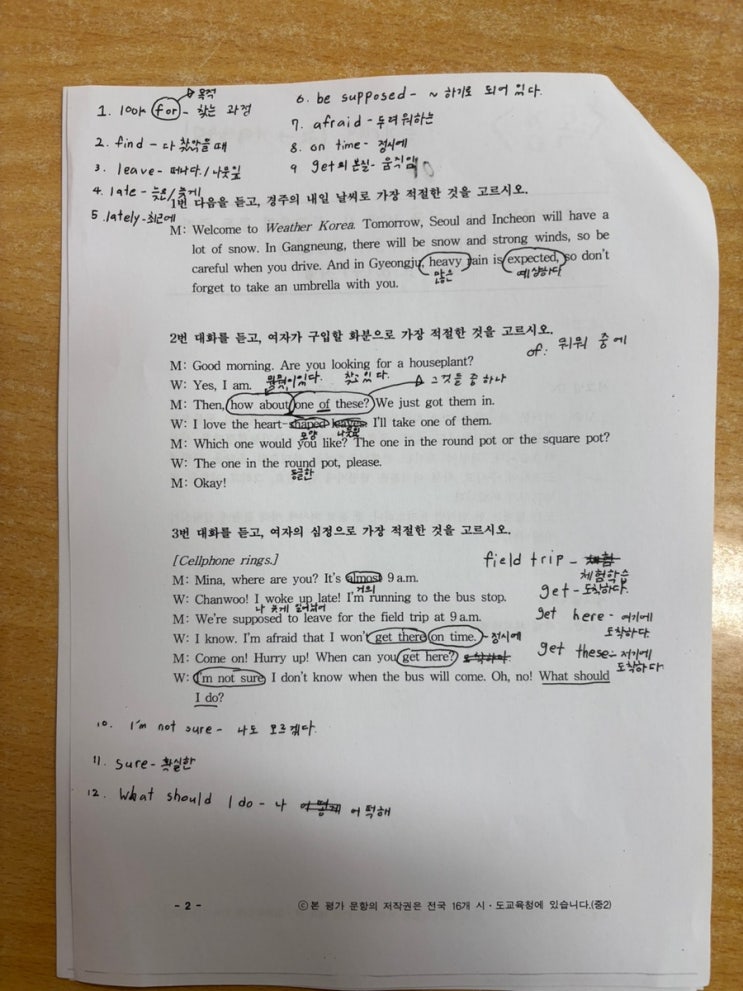 목적
1. look for - 찾는 과정
2. find - 다 찾았을 때
3. leave - 떠나다. / 나뭇잎
4. late - 늦은 / 늦게
5. lately - 최근에
6. be supposed - ~ 하기로 되어 있다.
7. afraid - 두려워하는
8. on time - 정시에
9 get의 본질 - 움직임
1번 다음을 듣고, 경주의 내일 날씨로 가장 적절한 것을 고르시오.
M: Welcome to Weather Korea. Tomorrow, Seoul and Incheon will have a
lot of snow. In Gangneung, there will be snow and strong winds, so be
careful when you drive. And in Gyeongju, heavy rain is expected, so don't
많은 예상하다
forget to take an umbrella with you.
2번 대화를 듣고, 여자가 구입할 화분으로 가장 적절한 것을 고르시오.
of: 뭐뭐 중에
M: Good morning. Are you looking for a houseplant?
W: Yes, I am.
찾고 있다.
그것들 중 하나
M: Then, how about one of these? We just got them in.
W: I love the heart-shaped leaves. I'll take one of them.
모양 나뭇잎
M: Which one would you like? The one in the round pot or the square pot?
W: The one in the round pot, please.
둥글한
M: Okay!
3번 대화를 듣고, 여자의 심정으로 가장 적절한 것을 고르시오.
[Cellphone rings.]
field trip - 체험
체험학습
M: Mina, where are you? It's almost 9 a.m.
거의
get - 도착하다.
W: Chanwoo! I woke up late! I'm running to the bus stop.
나 늦게 일어났어
M: We're supposed to leave for the field trip at 9 a.m.
get here - 여기에
도착하다
W: I know. I'm afraid that I won't get there on time. - 정시에
M: Come on! Hurry up! When can you get here? 도착하다
get these - 저기에
도착하다.
W: I'm not sure. I don't know when the bus will come. Oh, no! What should
I do?
10. I'm not sure - 나도 모르겠다.
11. sure - 확실한
12. What should I do - 나 어떻게 어떡해
- 2 -
ⓒ본 평가 문항의 저작권은 전국 16개 시·도교육청에 있습니다.(중2)